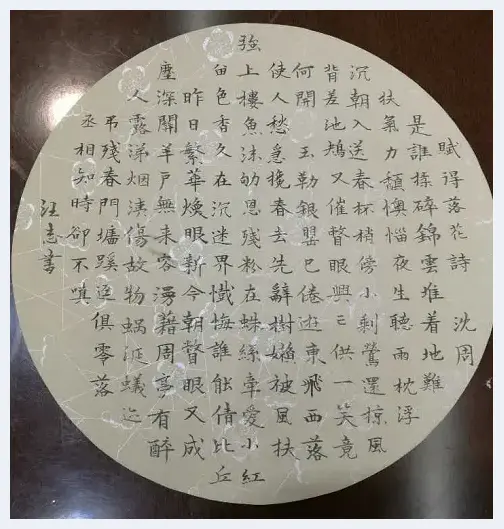 賦得落花詩 沈周
是誰揉碎錦雲堆着地難
扶氣力頹懊惱夜生聽雨枕浮
沉朝入送春杯梢傍小剩鶯還掠風
背差池鴂又催瞥眼興亡供一笑竟
何開 玉勒銀罌已倦遊東飛西落
使人愁急挽春去先辭樹嬾被風扶
強上樓魚沫劬恩殘粉在蛛絲牽愛小紅
留色香久在沉迷界懺悔誰能倩比丘
昨日繁華煥眼新今朝瞥眼又成
塵深關羊戶無來客漫藉周亭有醉
人露涕烟洟傷故物蝸涎蟻迹
弔殘春門墻蹊逕俱零落
丞相知時卻不嗔
汪志書